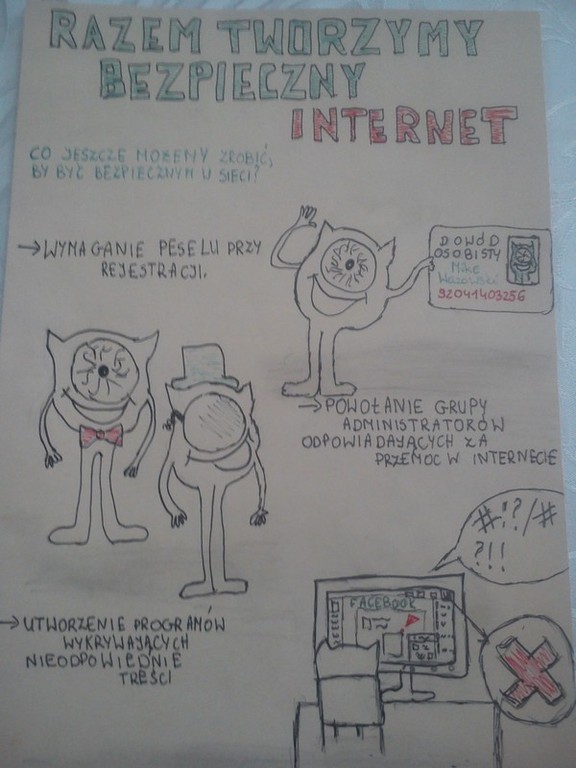 RAZEM TWORZYMY
BEZPIECZNY
INTERNET
CO JESZCZE MOŻEMY ZROBIĆ,
BY BYĆ BEZPIECZNYM W SIECI?
→WYMAGANIE PESELU PRZY
REJESTRACJI.
DOWÓD
OSOBISTY
Mike
Wazowski
92041403256
→POWOŁANIE GRUPY
ADMINISTRATORÓW
ODPOWIADAJĄCYCH ZA
PRZEMOC W INTERNECIE
#!?/#
?!!
FACEBOOK
→UTWORZENIE PROGRAMÓW
WYKRYWAJĄCYCH
NIEODPOWIEDNIE
TREŚCI